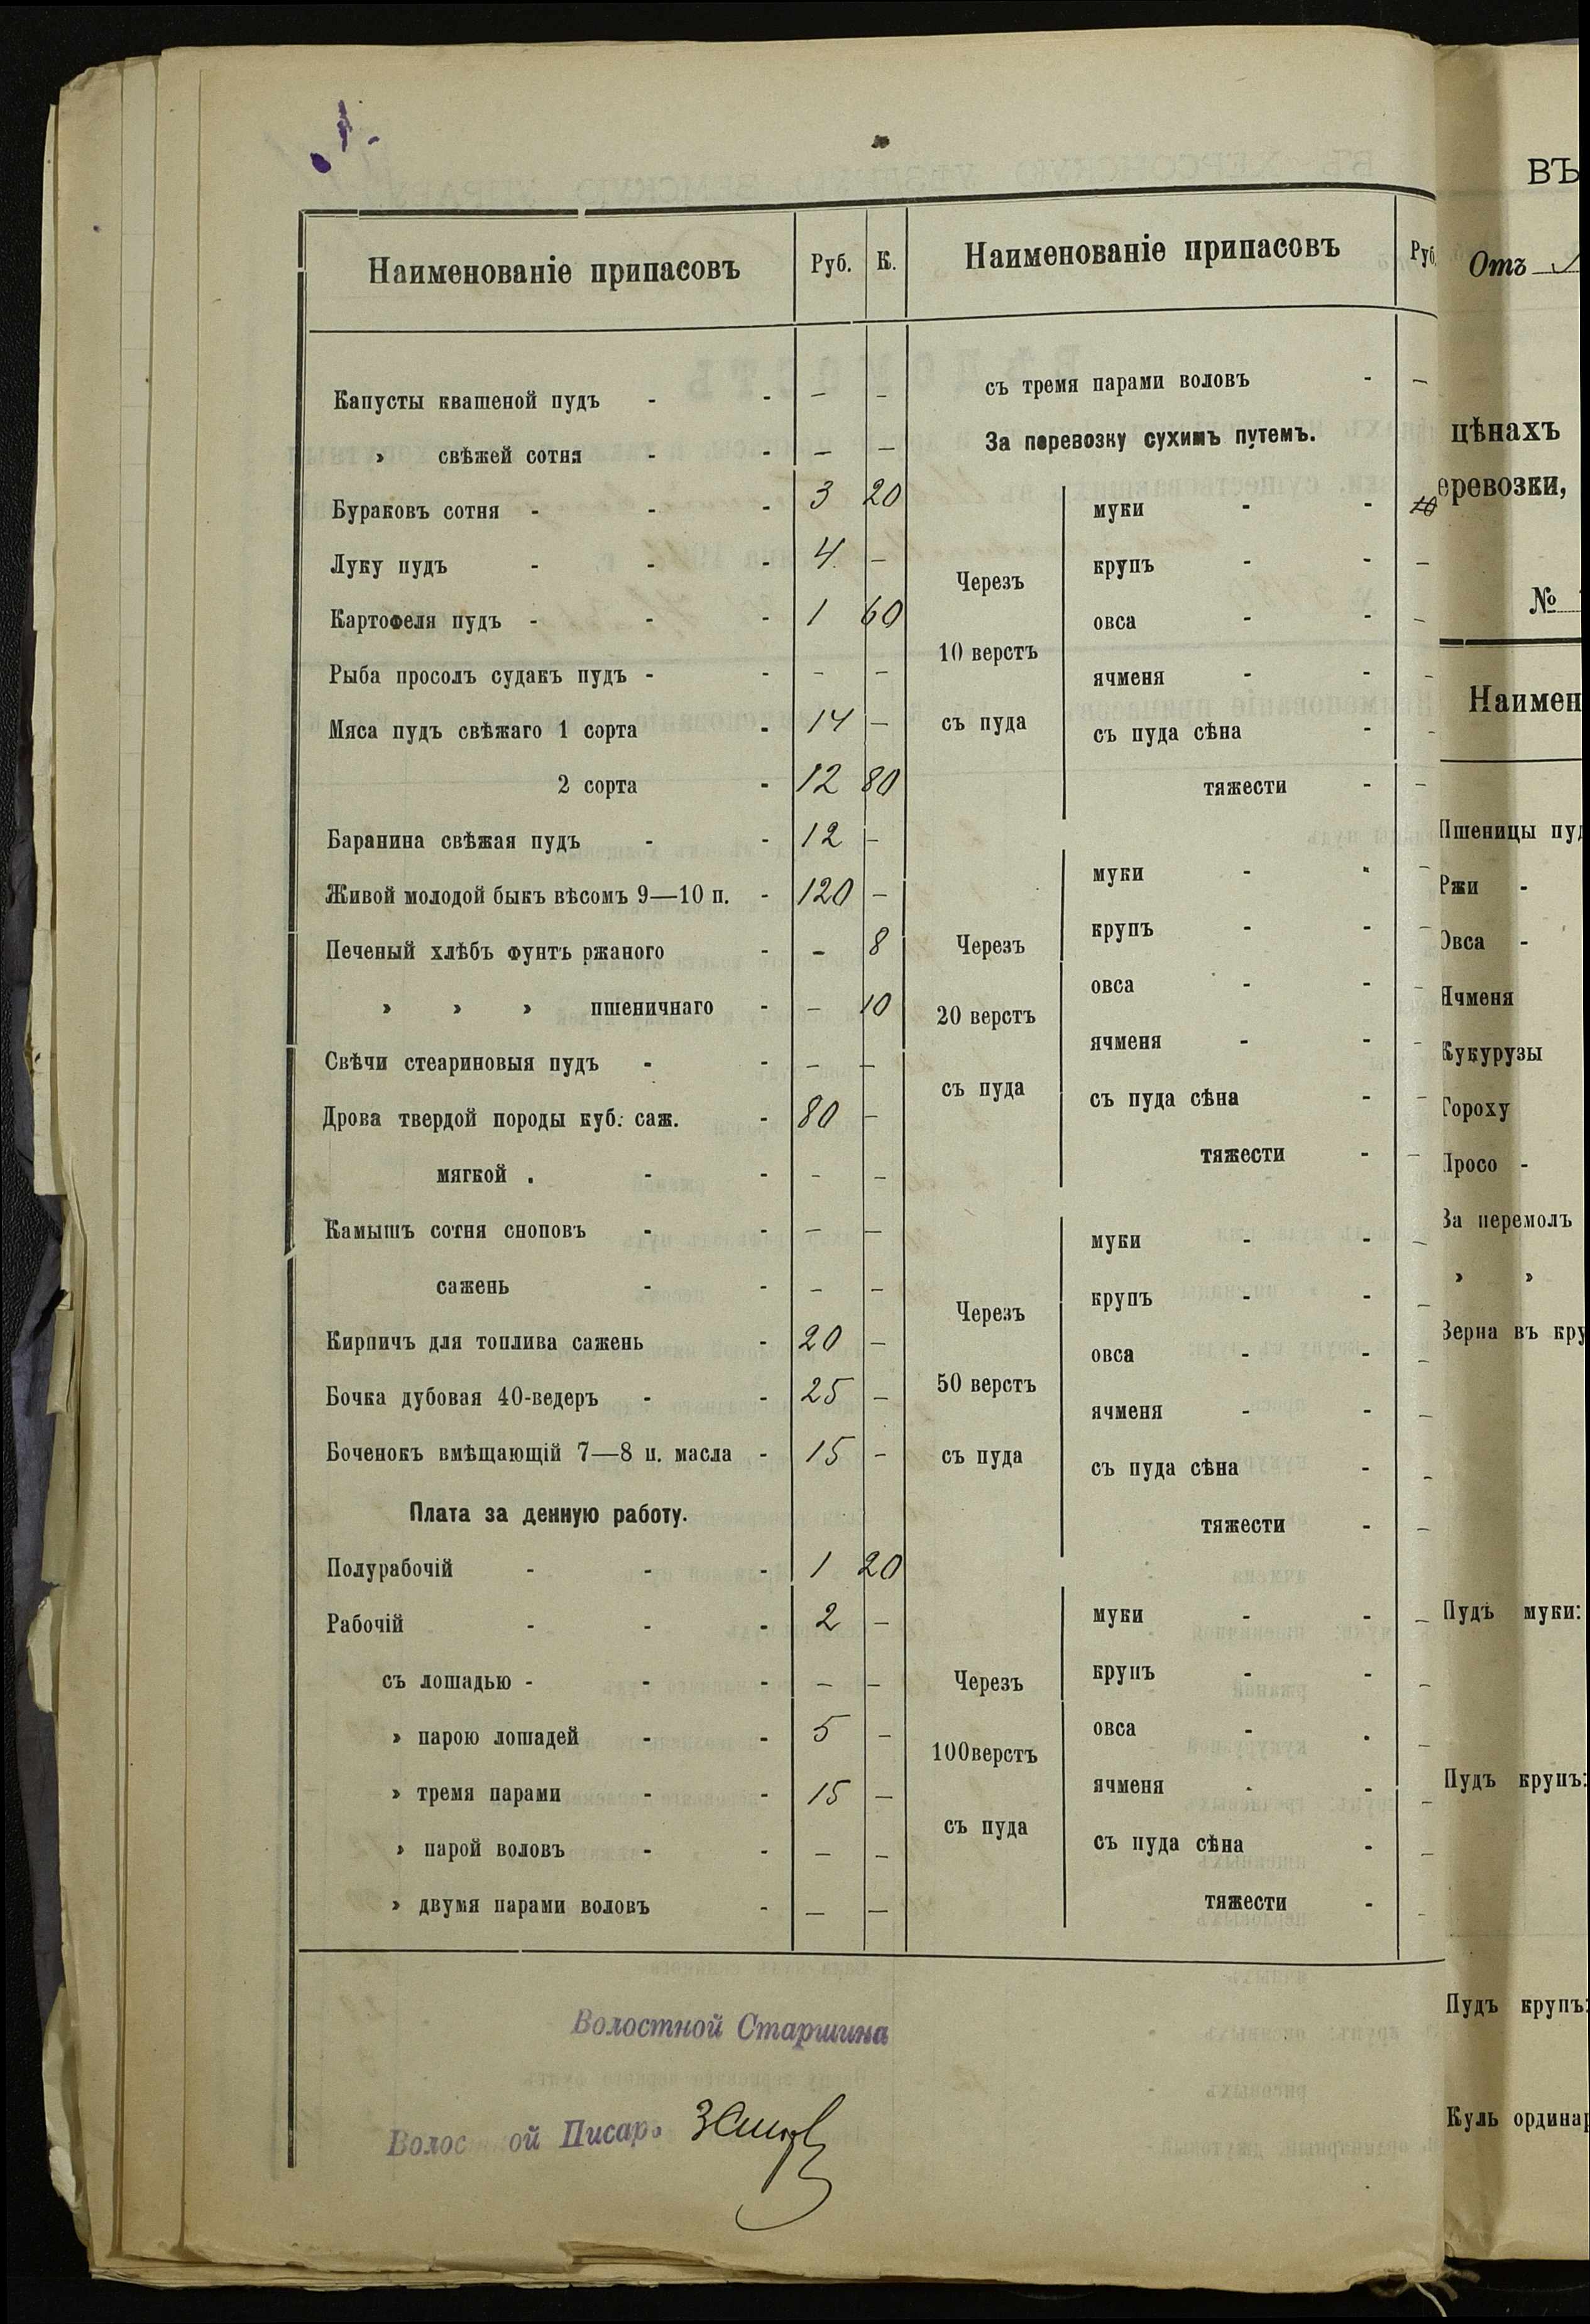 Наименованіе припасовъ Руб. К.
Капусты квашеной пудъ - - — —
» свѣжей сотня - - — —
Бураковъ сотня - - - 3 20
Луку пудъ - - - 4 —
Картофеля пудъ - - - 1 60
Рыба просолъ судакъ пудъ - - — —
Мяса пудъ свѣжаго 1 сорта - 14 —
2 сорта - 12 80
Баранина свѣжая пудъ - - 12 —
Живой молодой быкъ вѣсомъ 9—10 п. - 120 —
Печеный хлѣбъ фунтъ ржаного - — 8
» » » пшеничнаго - — 10
Свѣчи стеариновыя пудъ - - — —
Дрова твердой породы куб. саж. - 80 —
мягкой . - - — —
Камышъ сотня сноповъ - - — —
сажень - - — —
Кирпичъ для топлива сажень - 20 —
Бочка дубовая 40-ведеръ - - 25 —
Боченокъ вмѣщающій 7—8 п. масла - 15 —
Плата за денную работу.
Полурабочій - - - 1 20
Рабочій - - - 2 —
съ лошадью - - - — —
» парою лошадей - - 5 —
» тремя парами - - 15 —
» парой воловъ - - — —
» двумя парами воловъ - — —
Наименованіе припасовъ Руб.
съ тремя парами воловъ - —
За перевозку сухимъ путемъ.
Черезъ
10 верстъ
съ пуда
муки - - 10
крупъ - - —
овса - - —
ячменя - - —
съ пуда сѣна - —
тяжести - —
Черезъ
20 верстъ
съ пуда
муки - - —
крупъ - - —
овса - - —
ячменя - - —
съ пуда сѣна - —
тяжести - —
Черезъ
50 верстъ
съ пуда
муки - - —
крупъ - - —
овса - - —
ячменя - - —
съ пуда сѣна - —
тяжести - —
Черезъ
100верстъ
съ пуда
муки - - —
крупъ - - —
овса - - —
ячменя - - —
съ пуда сѣна - —
тяжести - —
Волостной Старшина
Волостной Писарь
ВЪ
Отъ
цѣнахъ
еревозки,
№
Наимен
Пшеницы пуд
Ржи -
Овса -
Ячменя
Кукурузы
Гороху
Просо -
За перемолъ
» »
Зерна въ кру
Пудъ муки:
Пудъ крупъ:
Пудъ крупъ:
Куль ординар